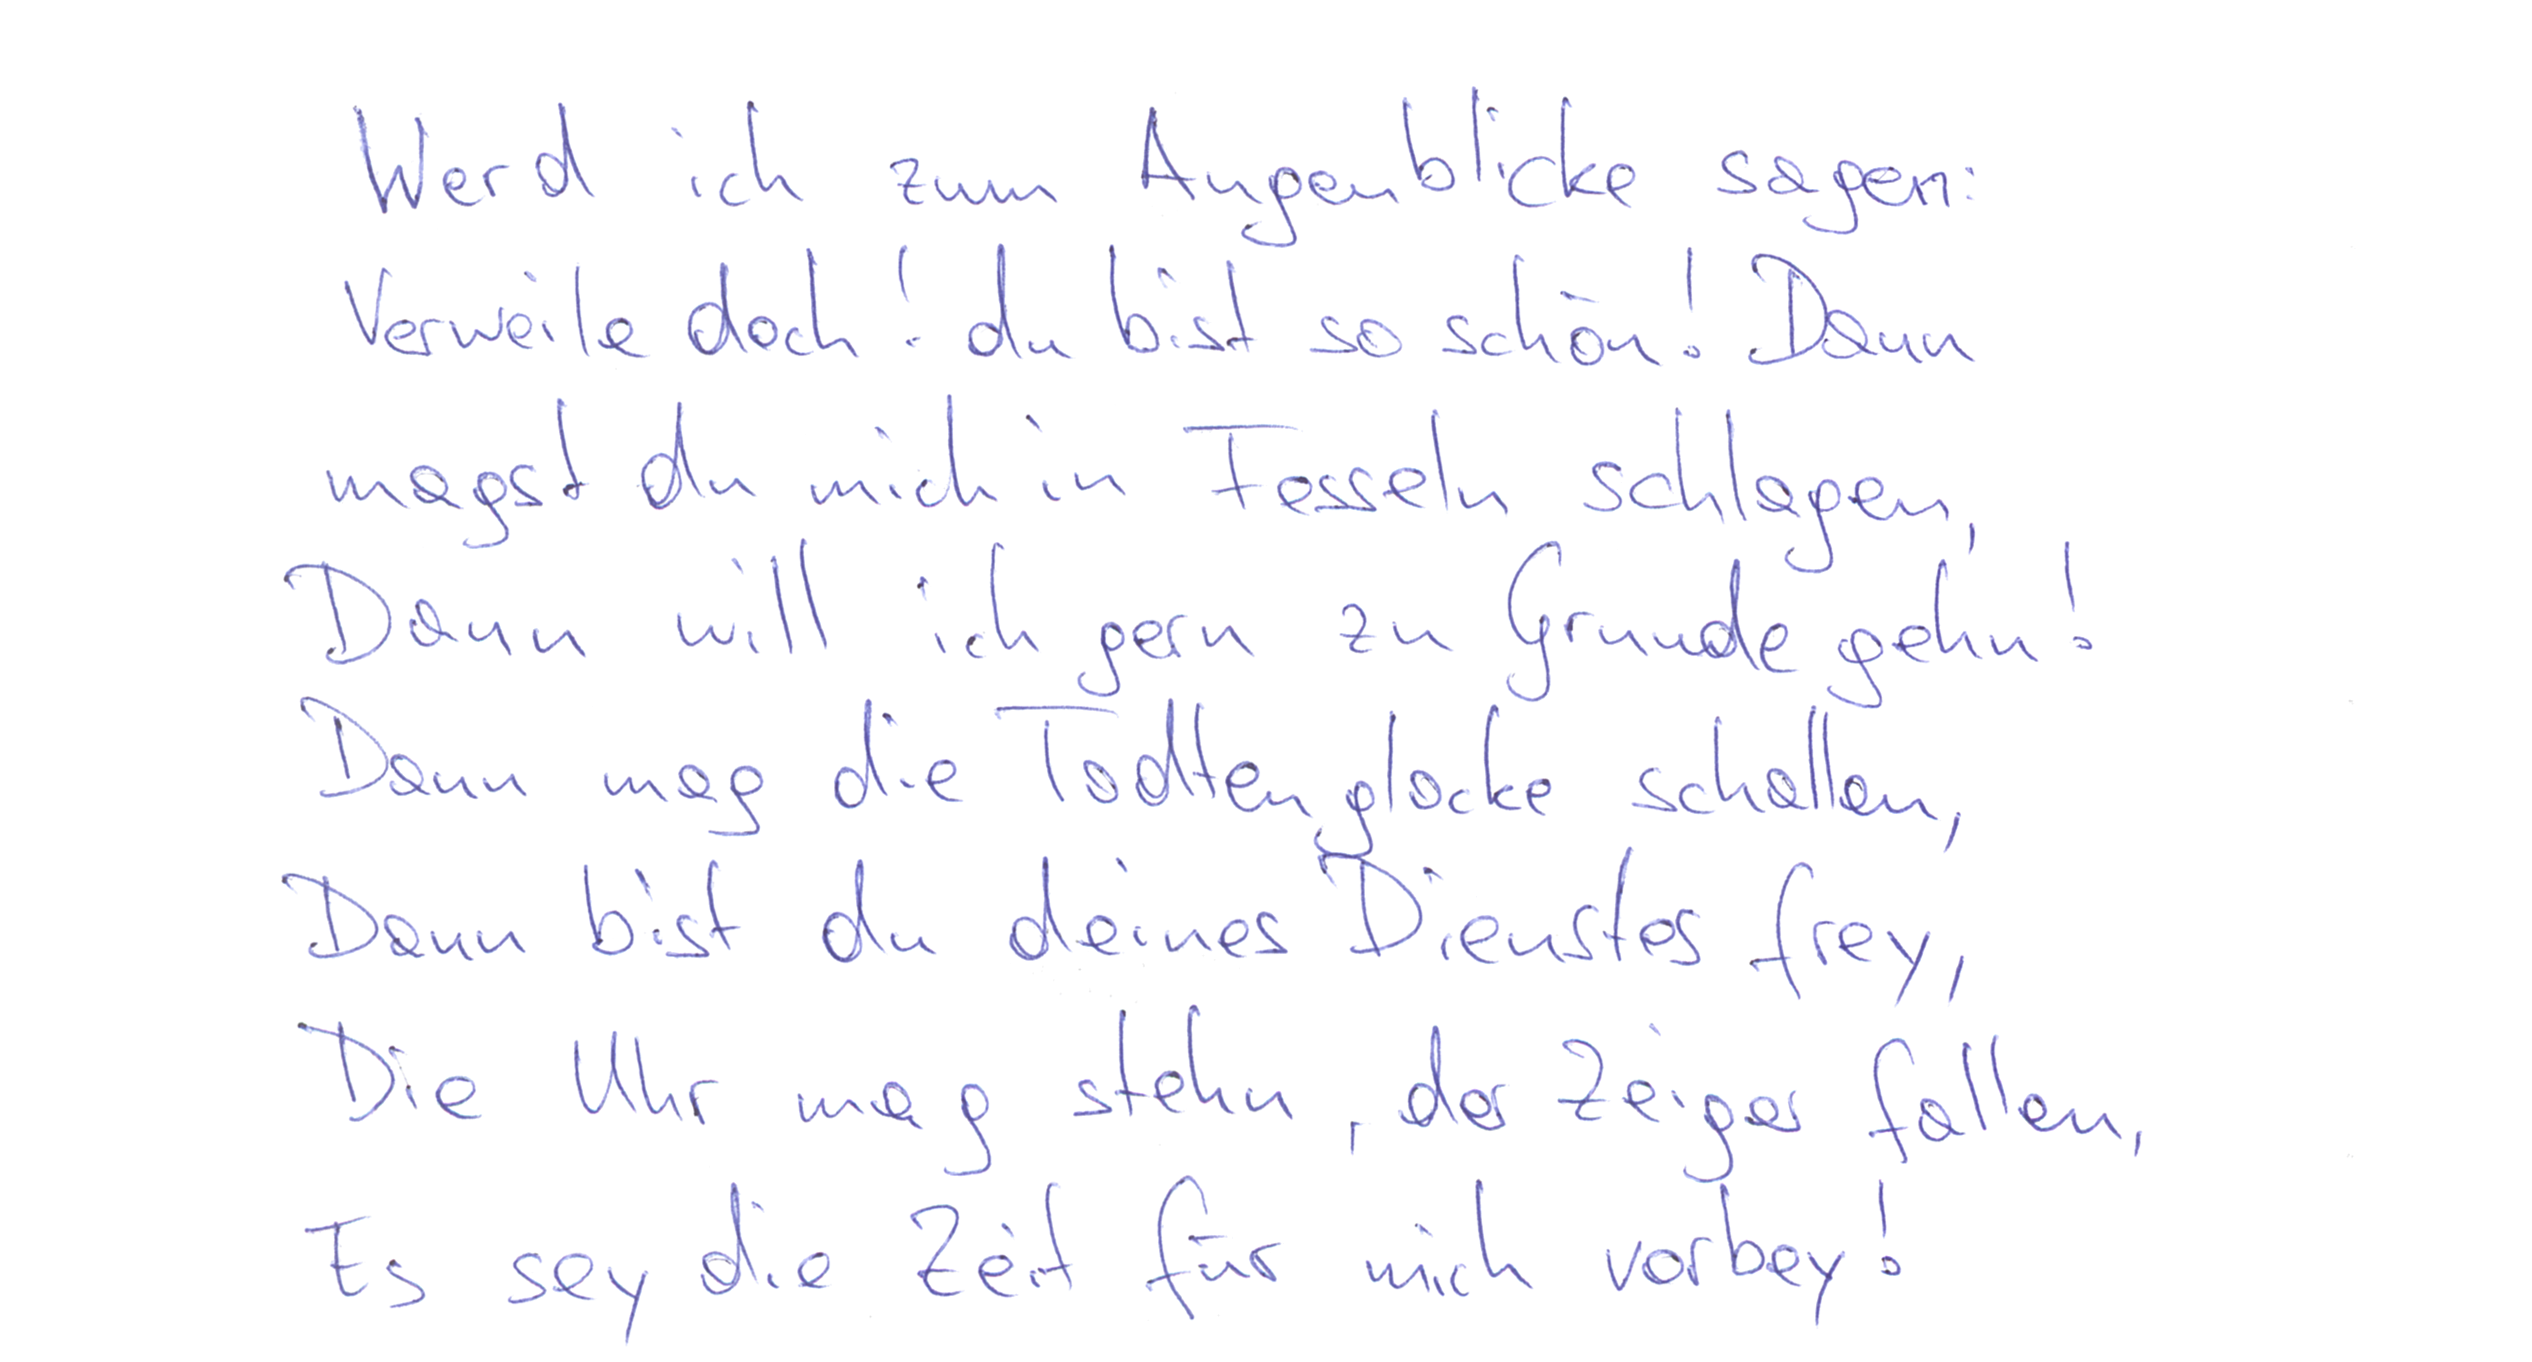 Werd ich zum Augenblicke sagen:
Verweile doch! du bist so schön! Dann
magst du mich in Fesseln schlagen,
Dann will ich gern zu Grunde gehn!
Dann mag die Todtenglocke schallen,
Dann bist du deines Dienstes frey,
Die Uhr mag stehn, der Zeiger fallen,
Es sey die Zeit für mich vorbey!